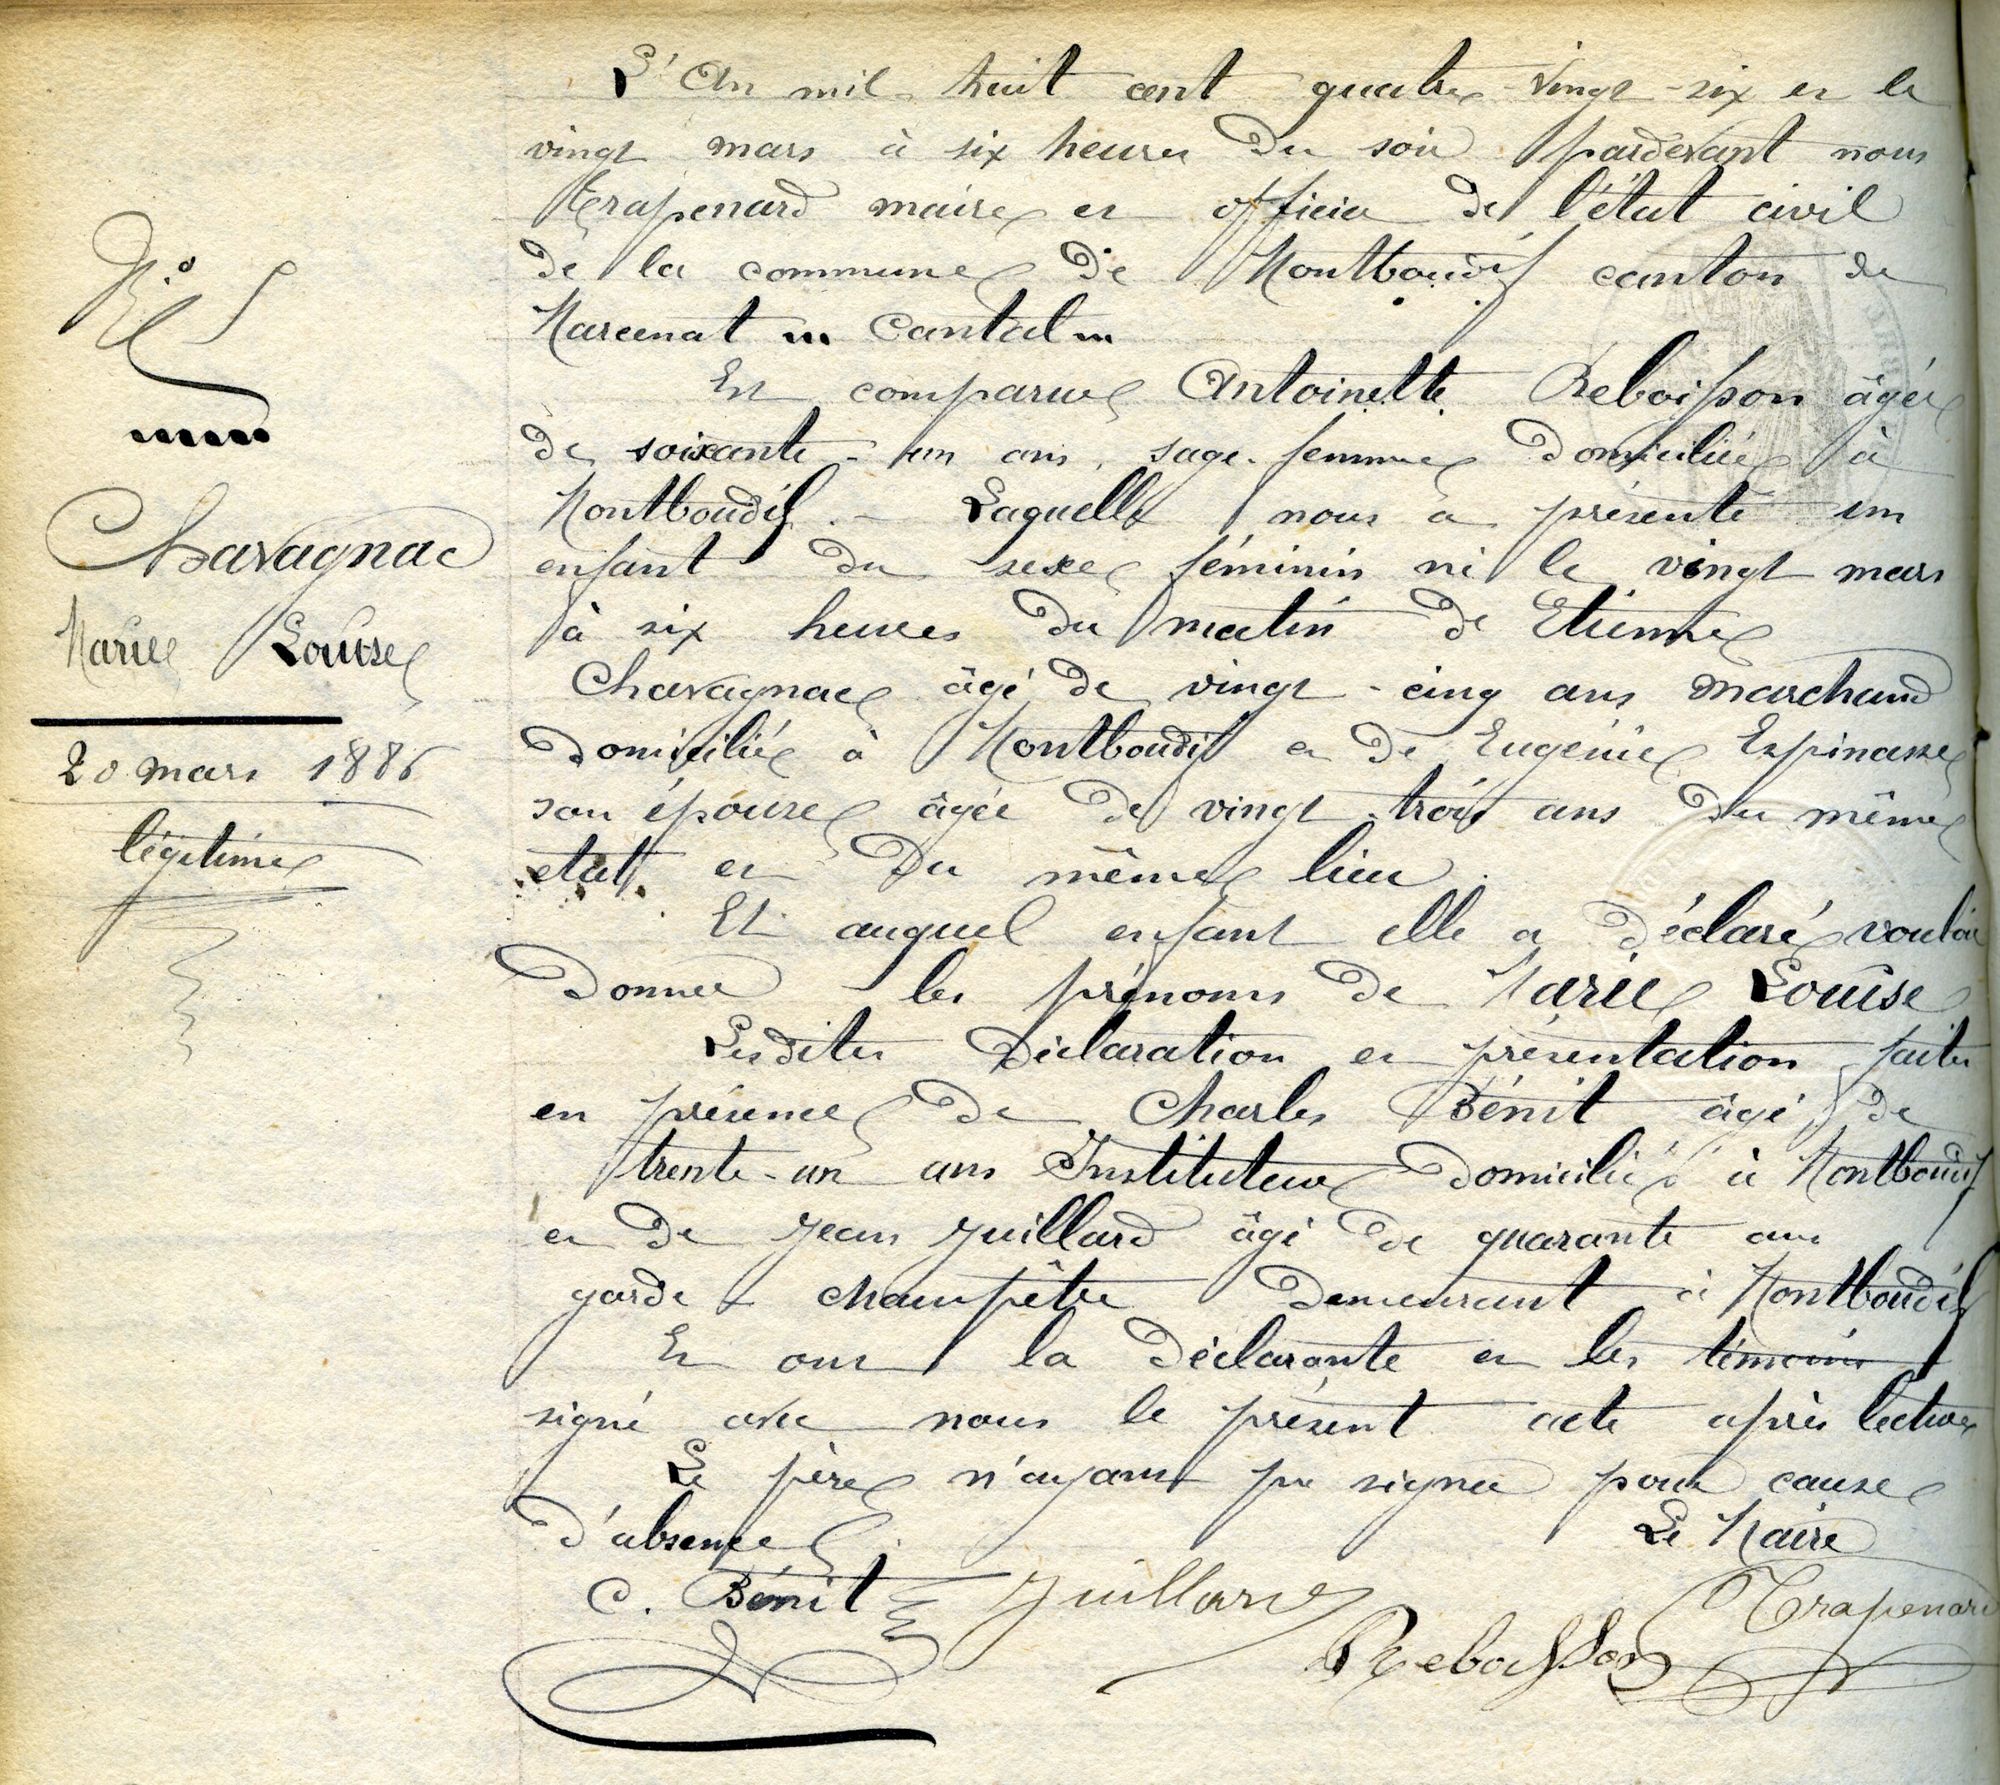 N.º 5
Chavagnac
Marie Louise
20 mars 1886
légitime
L'An mil huit cent quatre-vingt-six et le
vingt mars à six heures du soir pardevant nous
Trapenard maire et officier de l'état civil
de la commune de Montboudif canton de
Marcenat Cantal
Est comparue Antoinette Reboisson âgée
de soixante-un ans, sage-femme domiciliée à
Montboudif. - Laquelle nous a présenté un
enfant du sexe féminin né le vingt mars
à six heures du matin de Etienne
Chavagnac âgé de vingt-cinq ans marchand
domicilié à Montboudif et de Eugénie Espinasse
son épouse âgée de vingt-trois ans du même
état et du même lieu.
Et auquel enfant elle a déclaré vouloir
donner les prénoms de Marie Louise
Lesdites déclaration et présentation faites
en présence de Charles Bénit âgé de
trente-un ans Instituteur domicilié à Montboudif
et de Jean Juillard âgé de quarante ans
garde-champêtre demeurant à Montboudif
Et ont la déclarante et les témoins
signé avec nous le présent acte après lecture
Le père n'ayant pu signer pour cause
d'absence.
Le Maire
C. Bénit Juillard Trapenard
Reboisson